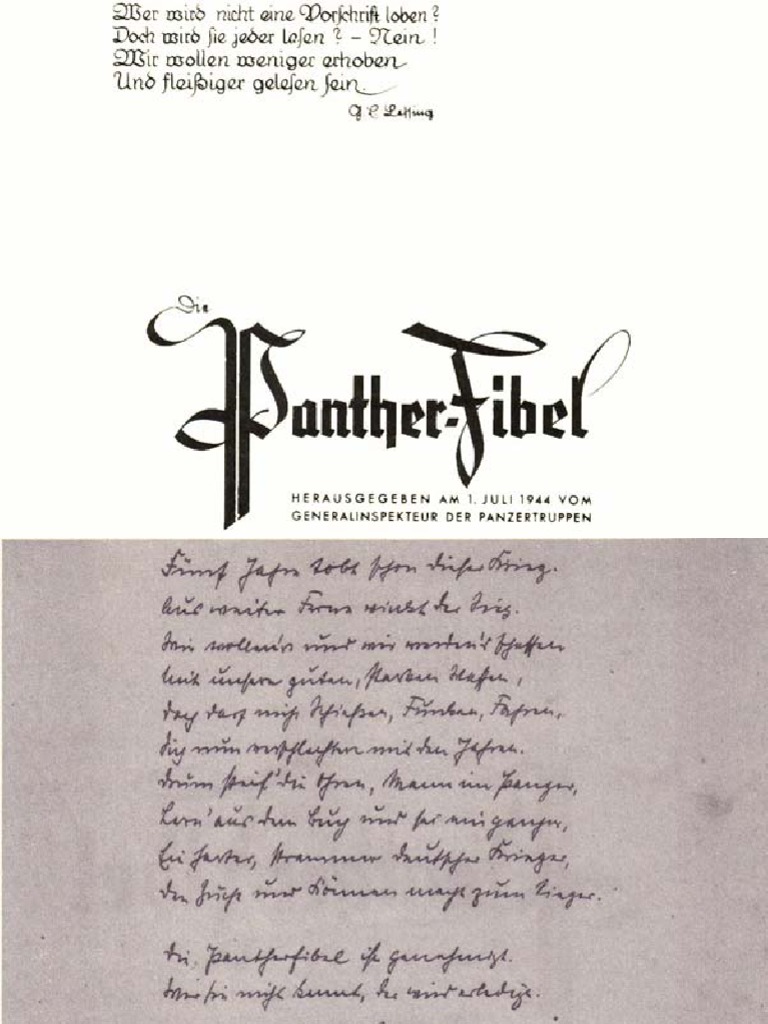 Wer wird nicht eine Vorschrift loben?
Doch wird sie jeder lesen? – Nein!
Wir wollen weniger erhoben
Und fleißiger gelesen sein.
G E Lessing
Die
Panther-Fibel
HERAUSGEGEBEN AM 1. JULI 1944 VOM
GENERALINSPEKTEUR DER PANZERTRUPPEN
Fünf Jahre tobt schon dieser Krieg.
Aus weiter Ferne winkt der Sieg.
Wir wollen's und wir werden's schaffen
Mit unsern guten, starken Waffen,
doch darf nicht Schießen, Funken, Fahren,
Sich nun verschlechtern mit den Jahren.
Drum steif' die Ohren, Mann im Panzer,
Lern' aus dem Buch und sei ein ganzer,
Ein harter, strammer deutscher Krieger,
den Zucht und Können macht zum Sieger.
Die Pantherfibel ist genehmigt.
Wer sie nicht kennt, der wird erledigt.